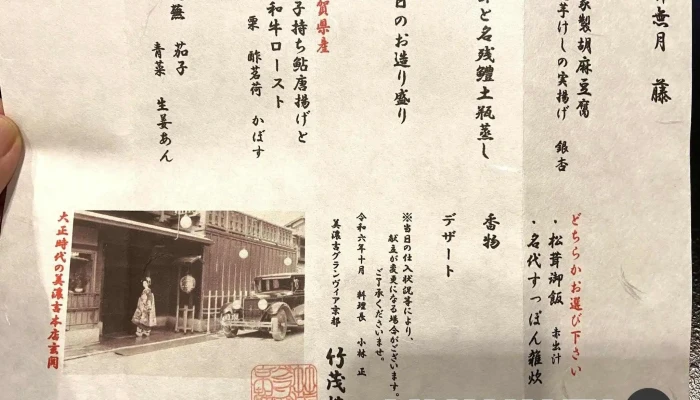 無月 藤
製胡麻豆腐
芋けしの実揚げ 銀杏
と名残鱧土瓶蒸し
日のお造り盛り
賀県産
子持ち鮎唐揚げと
和牛ロースト
栗 酢茗荷 かぼす
蕪 茄子
青菜 生姜あん
どちらかお選び下さい
・松茸御飯 赤出汁
・名代すっぽん雑炊
香物
デザート
※当日の仕入状況等により、
献立が変更になる場合がございます。
ご了承くださいませ。
令和六年十月 料理長 小林 正
美濃吉グランヴィア京都 竹茂
大正時代の美濃吉本店玄関